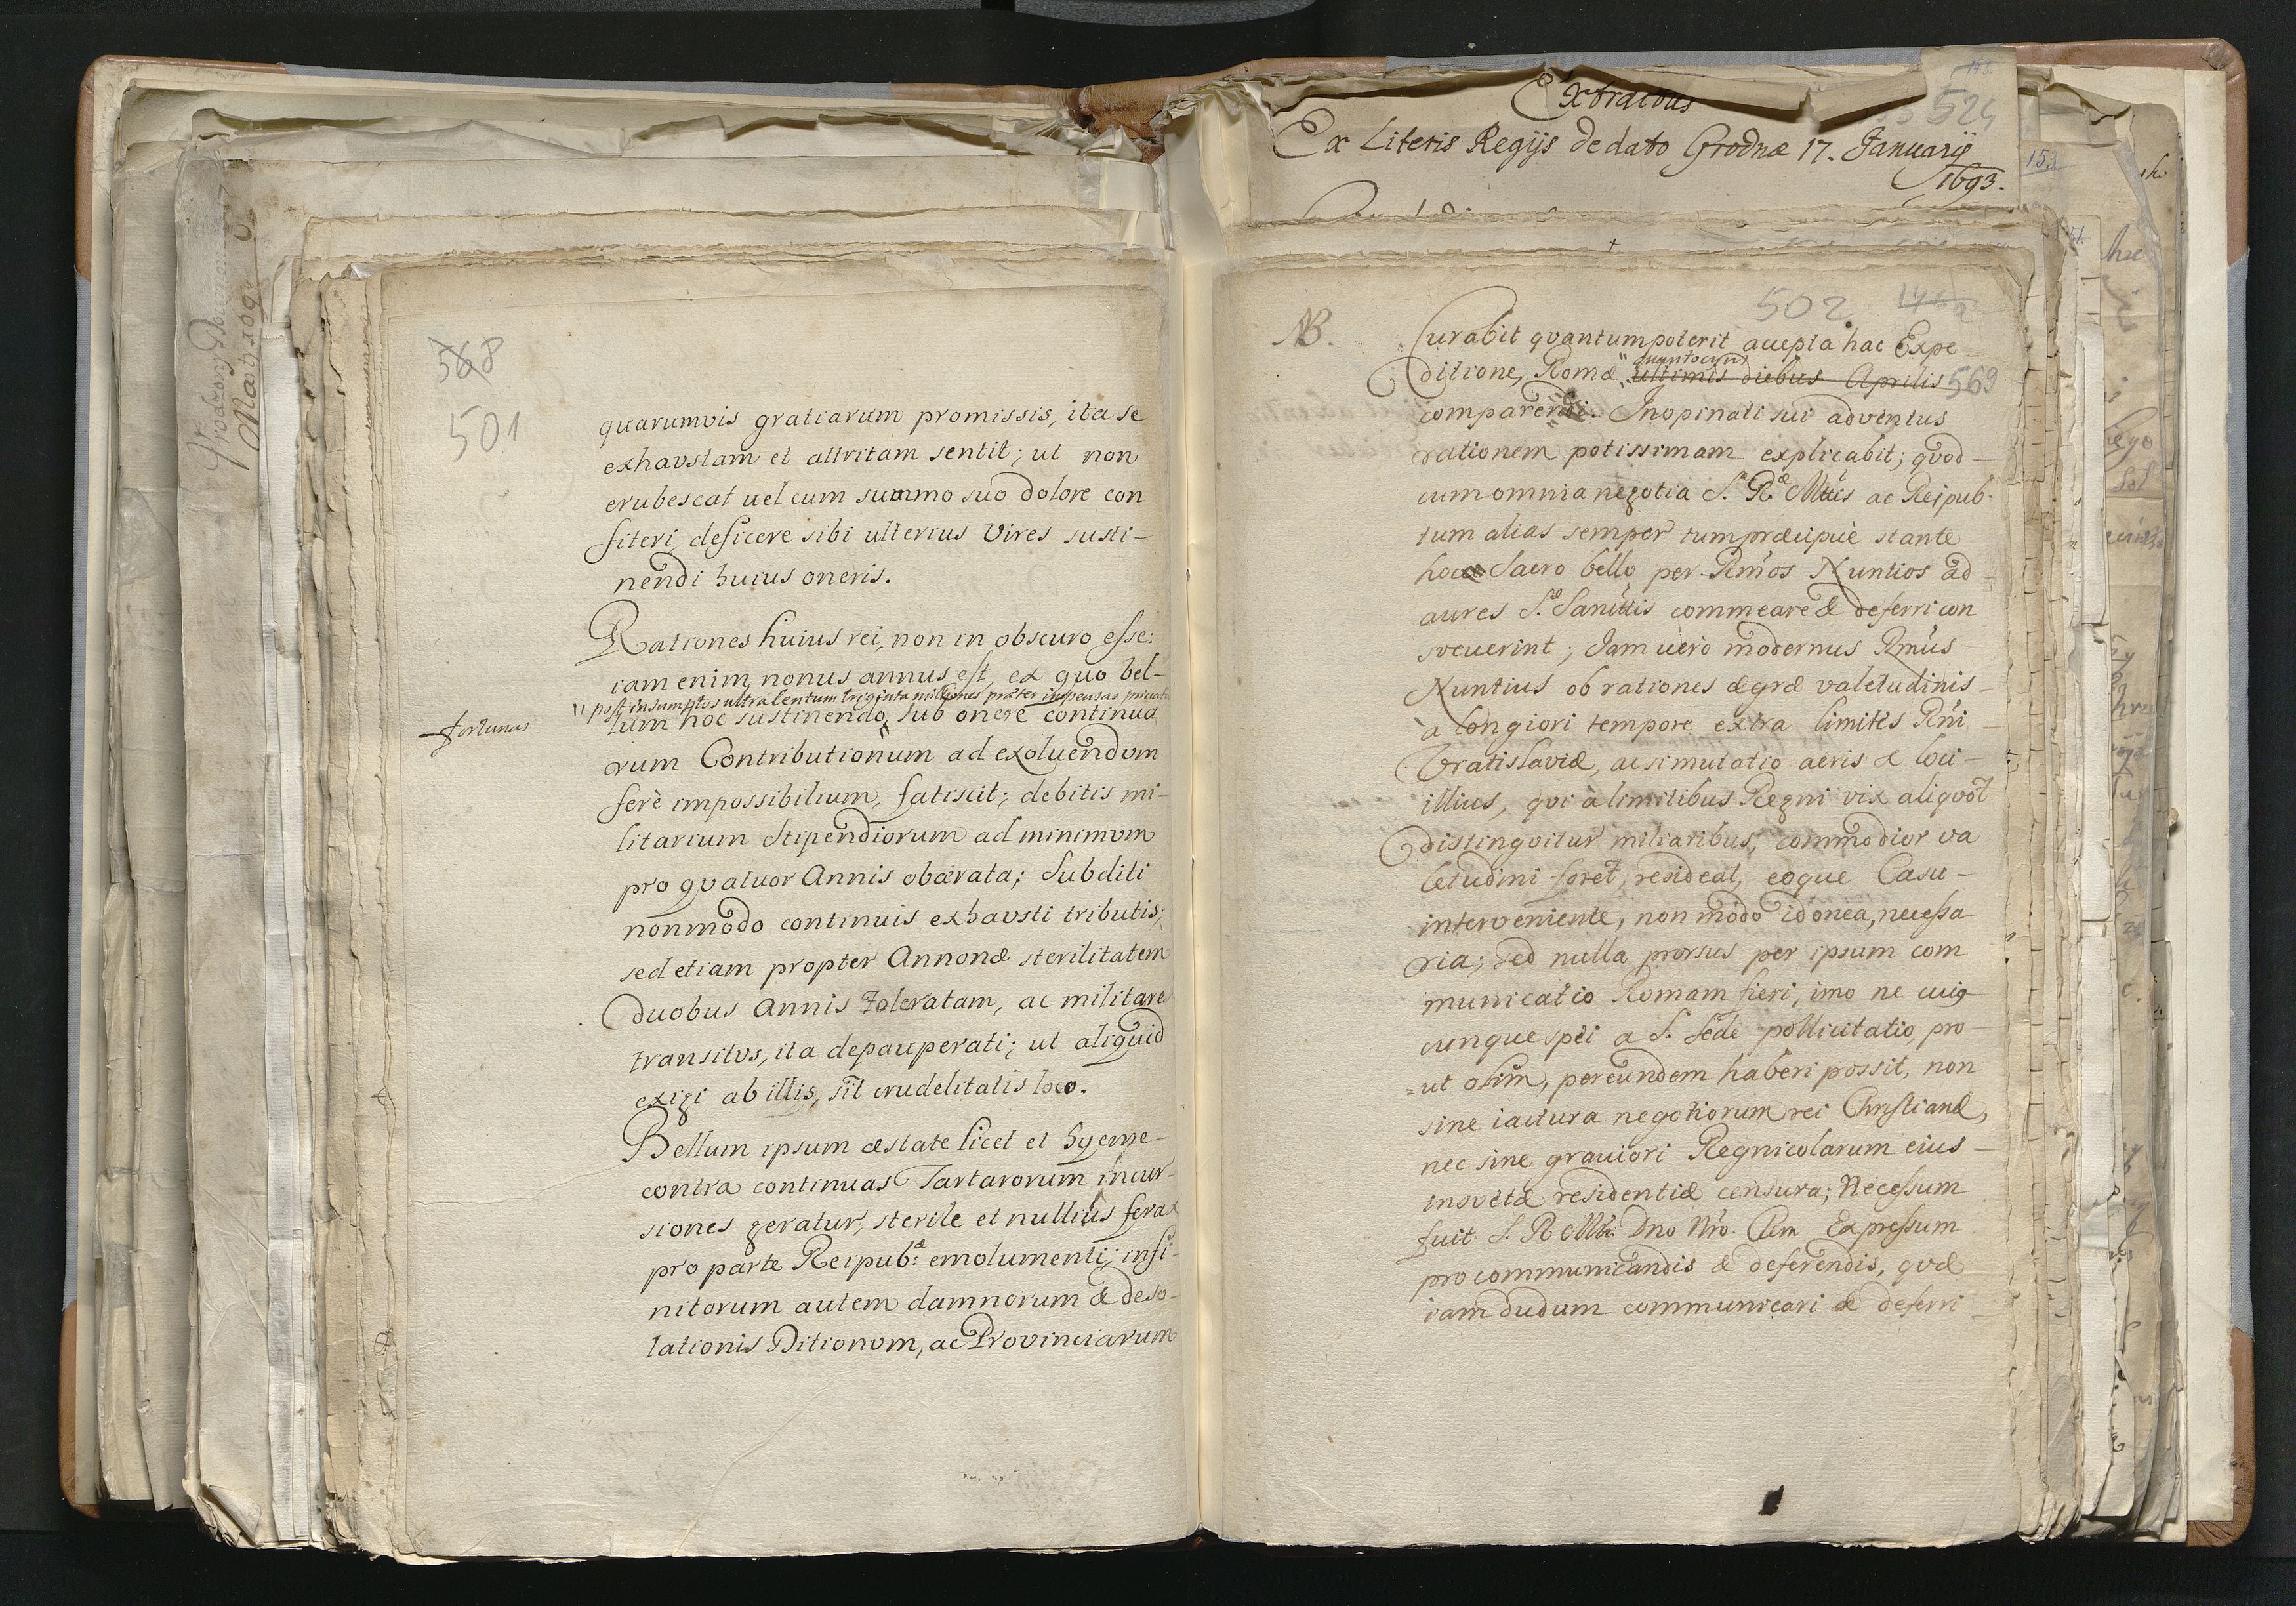 568
501
quarumvis gratiarum promissis, ita se
exhaustam et attritam sentit; ut non
erubescat uel cum summo suo dolore con
fiteri, deficere sibi ulterius vires susti-
nendi huius oneris.
Rationes huius rei, non in obscuro esse:
iam enim nonus annus est, ex quo bel-
post insumptos ultra centum triginta milliones præter impensas privatas
fortunas
lum hoc sustinendo, sub onere continua
rum Contributionum ad exoluendum
ferè impossibilium, fatiscit; debitis mi-
litarium Stipendiorum ad minimum
pro quatuor Annis obærata; Subditi
nonmodo continuis exhausti tributis;
sed etiam propter Annonæ sterilitatem
duobus Annis toleratam, ac militares
transitus, ita depauperati; ut aliquid
exigi ab illis, sit crudelitatis loco.
Bellum ipsum æstate licet et hyeme-
contra continuas Tartarorum incur-
siones geratur, sterile et nullius ferax
pro parte Reipub:æ emolumenti; infi-
nitorum autem damnorum & deso-
lationis Ditionum, ac Provinciarum
Extractus
524
Ex Literis Regijs de dato Grodnæ 17. Januarij
1693.
153
502
NB.
Curabit quantum poterit accepta hac Expe-
quantocyus
ditione, Romæ ultimis diebus Aprilis
569
comparendi. Inopinati sui adventus
rationem potissimam explicabit; quod-
cum omnia negotia S.æ R.æ Mttis ac Reipub.
tum alias semper tum præcipuè stante
hoc Sacro bello per Rmos Nuntios ad-
aures S.æ Sanittis commeare & deferri con
sveuerint; Jam uerò modernus Rmus
Nuntius ob rationes ægræ valetudinis-
à longiori tempore extra limites Rni-
Vratislaviæ, ac si mutatio aeris & loci-
illius, qui à limitibus Regni vix aliquot
distinguitur miliaribus, commodior va
letudini foret, resideat, eoque Casu-
interveniente, non modo idonea, necessa
ria; sed nulla prorsus per ipsum com
municatio Romam fieri, imo ne cuig
cunque spei a S. Sede pollicitatio, pro-
=ut olim, per eundem haberi possit, non
sine iactura negotiorum rei Christianæ,
nec sine grauiori Regnicolarum eius-
insvetæ residentiæ censura; Necessum
fuit S. R Mtti Dno Nro. Clem Expressum
pro communicandis & deferendis, quæ
iam dudum communicari & deferri